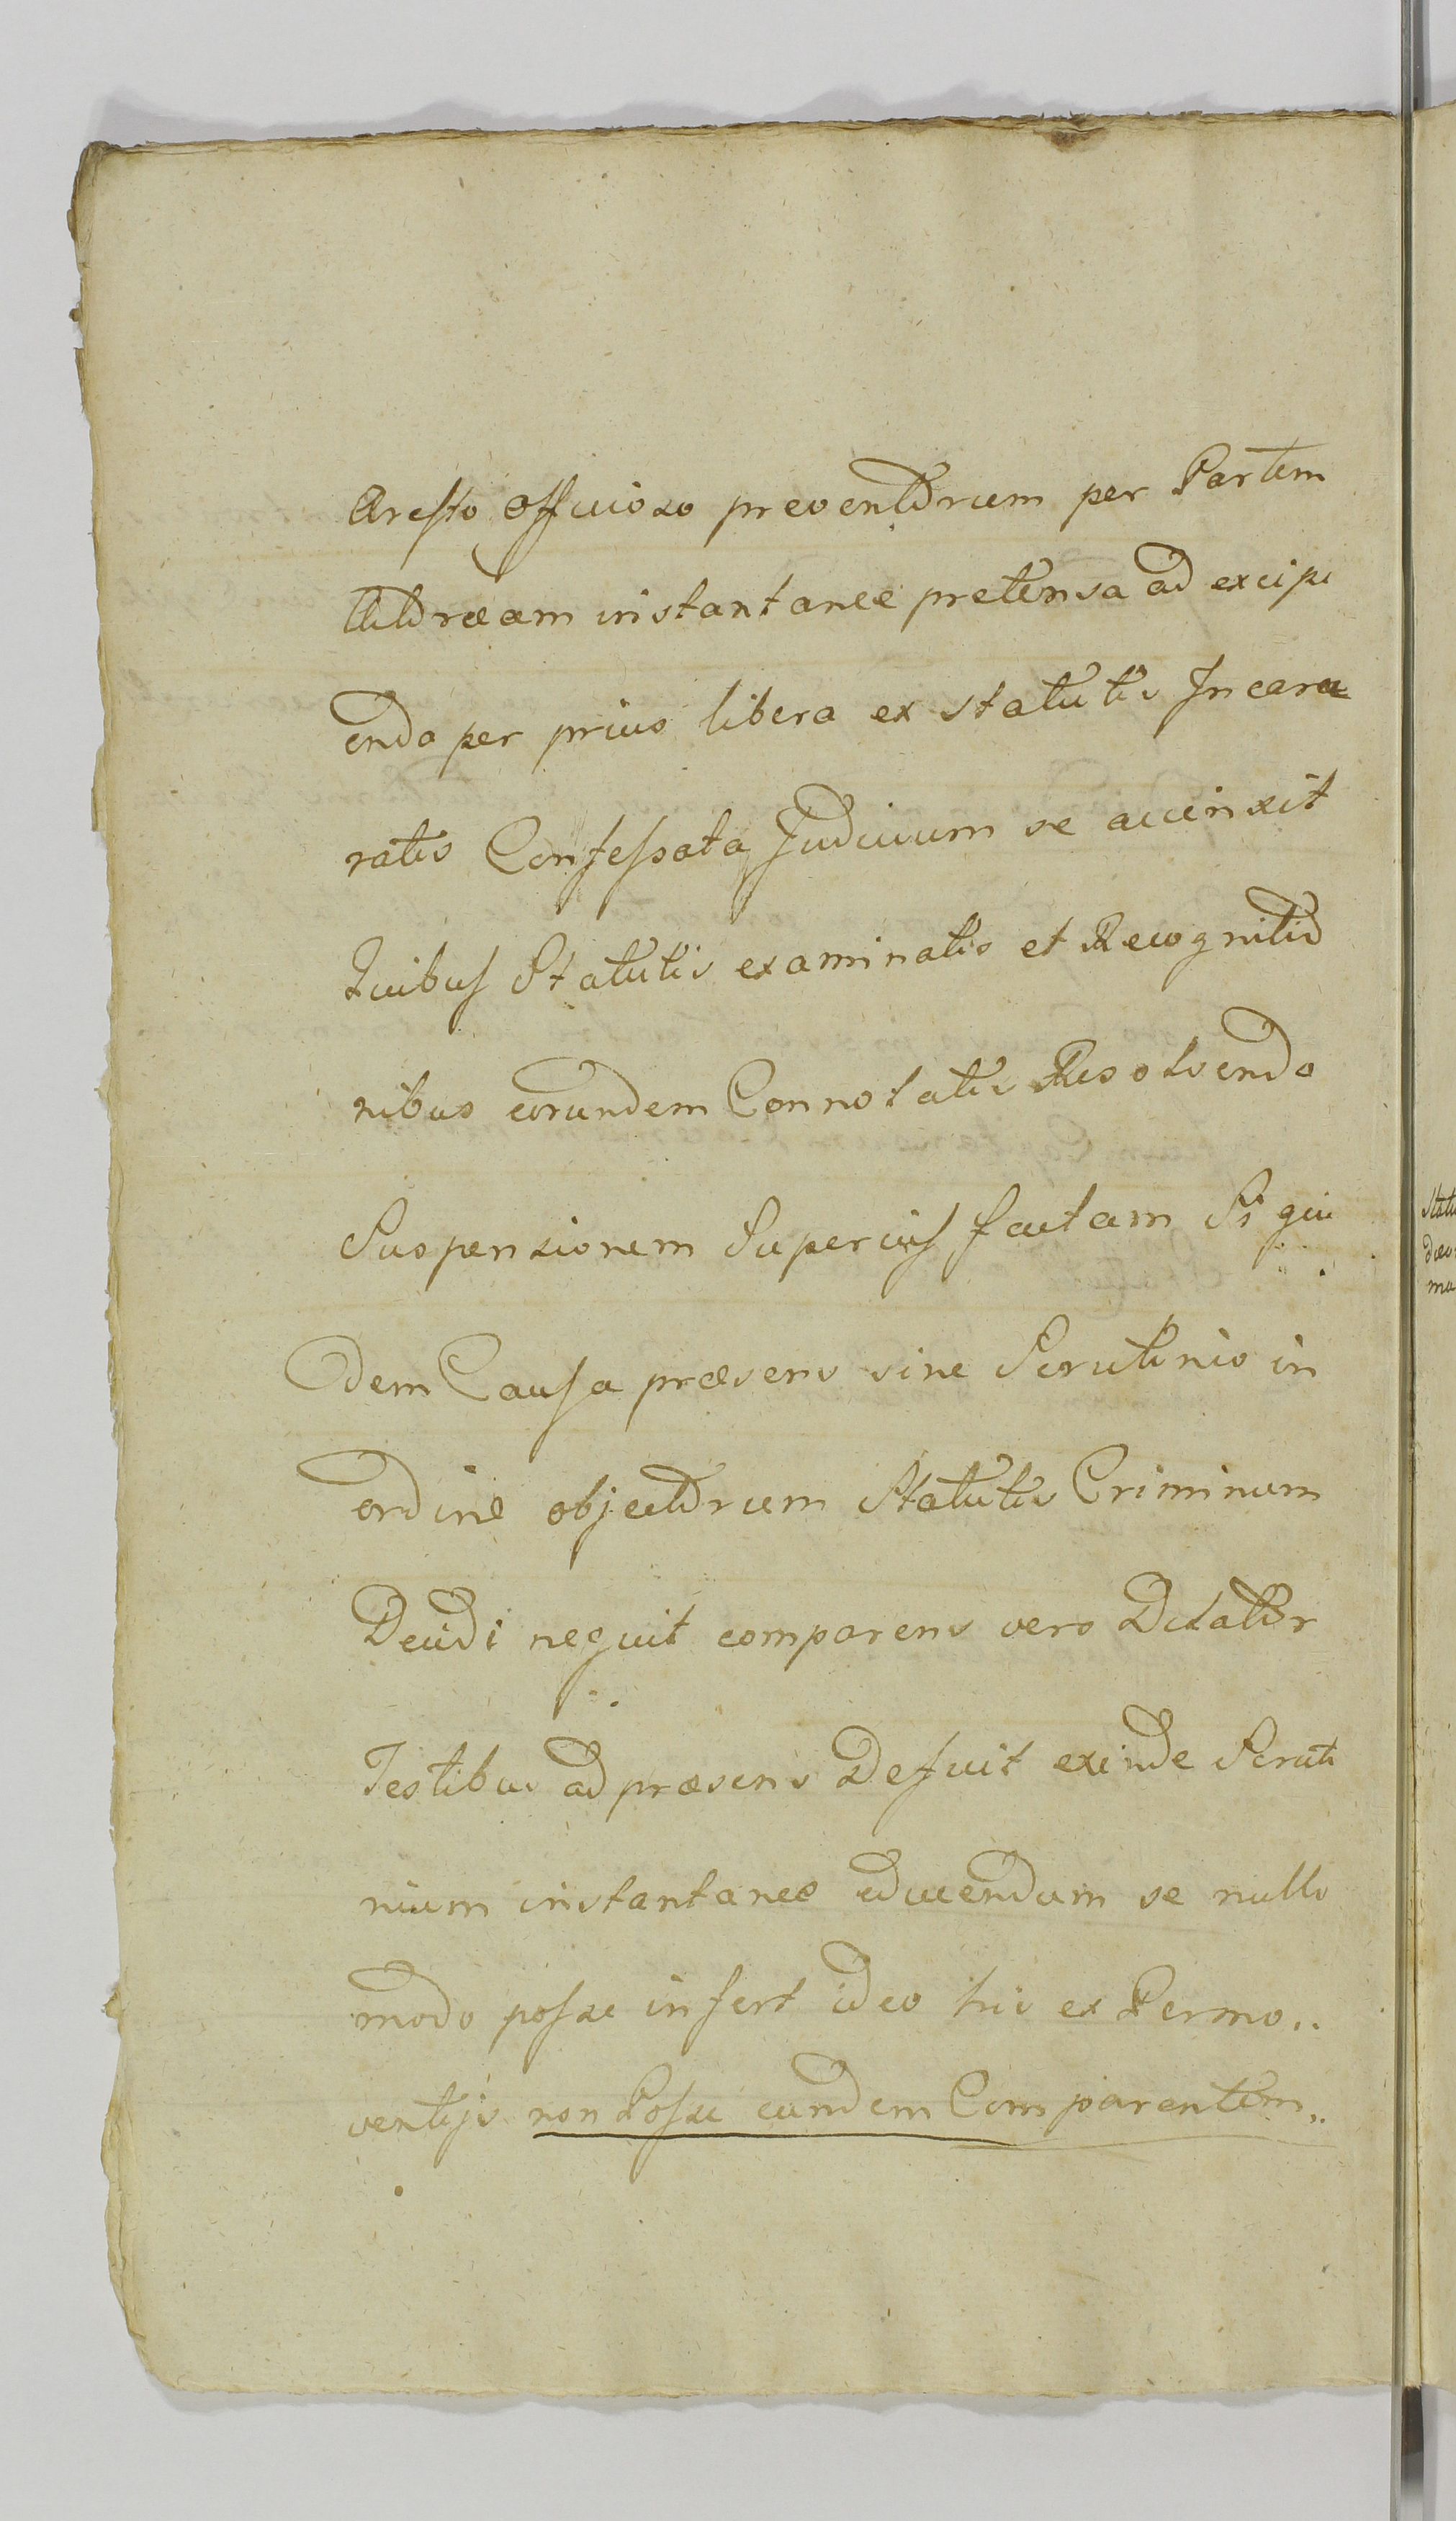 Aresto officioso preventorum per Partem
Actoream instantanee pretensa ad excipi
enda per prius libera ex statutis Incarce
ratis Confessata Judicium se accinxit
Quibus Statutis examinatis et Recognitio
nibus eorundem Connotatis Resolvendo
Suspensionem Superius factam Si qui
dem Causa præsens sine Scrutinio in
ordine objectorum Statutis Criminum
Decidi nequit comparens vero Delator
Testibus ad præsens Defuit exinde Scruti
nium instantanee educendum se nullo
modo posse infert ideo his ex Permo..
ventijs non Posse eundem Comparentem..